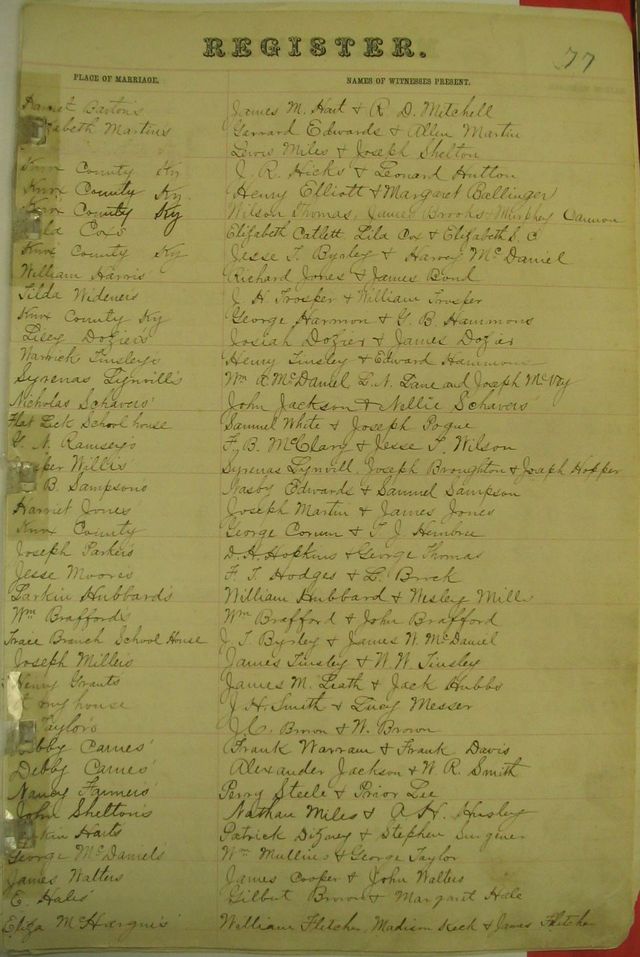 REGISTER.
77
PLACE OF MARRIAGE. NAMES OF WITNESSES PRESENT.
Barton's James M. Hart & R. D. Mitchell
Martin's Garrard Edwards & Allen Martin
Lewis Miles & Joseph Shelton
Knox County Ky J. R. Hicks & Leonard Hutton
Knox County Ky. Henry Elliott & Margaret Ballinger
Knox County Ky Wilson Thomas, James Brooks & Murphey Cannon
Cox's Elizabeth Catlett, Lila Cox & Elizabeth S. C
Knox County Ky Jesse T. Byrley & Harvey McDaniel
William Harris Richard Jones & James Bond
Tilda Wideners J. H. Trosper & William Trosper
Knox County Ky George Harmon & G. B. Hammons
Lucy Dozier's Josiah Dozier & James Dozier
Warrick Tinsleys Henry Tinsley & Edward Hammons
Syrenas Lynvill's Wm A. McDaniel L. N. Lane and Joseph McVey
Nicholas Schavers' John Jackson & Nellie Schavers
Flat Lick School house Samuel White & Joseph Pogue
G. N. Ramsey's F. B. McClary & Jesse T. Wilson
Willis Syrenas Lynvill, Joseph Broughton & Joseph Hopper
B. Sampson's Gasby Edwards & Samuel Sampson
Harriet Jones Joseph Martin & James Jones
Knox County George Cornn & T. J. Hembree
Joseph Parkers D. H. Hopkins & George Thomas
Jesse Moore's F. T. Hodges & L. Brock
Larkin Hubbard's William Hubbard & Wesley Mills
Wm Brafford's Wm Brafford & John Brafford
Trace Branch School House J. T. Byrley & James W. McDaniel
Joseph Millers James Tinsley & W. W. Tinsley
Henry Grants James M. Leath & Jack Hubbs
my house J. H. Smith & Lucy Messer
Taylor's J. C. Brown & W. Brown
Debby Carnes' Frank Warram & Frank Davis
Debby Carnes' Alexander Jackson & W. R. Smith
Nancy Farmers Perry Steele & Prior Lee
John Shelton's Nathan Miles & A. H. Husley
Harts Patrick Dizney & Stephen Surgener
George McDaniels Wm Mullins & George Taylor
James Walters James Cooper & John Walters
E. Hales' Gilbert Brown & Margaret Hale
Eliza McHargue's William Fletcher, Madison Keck & James Fletcher